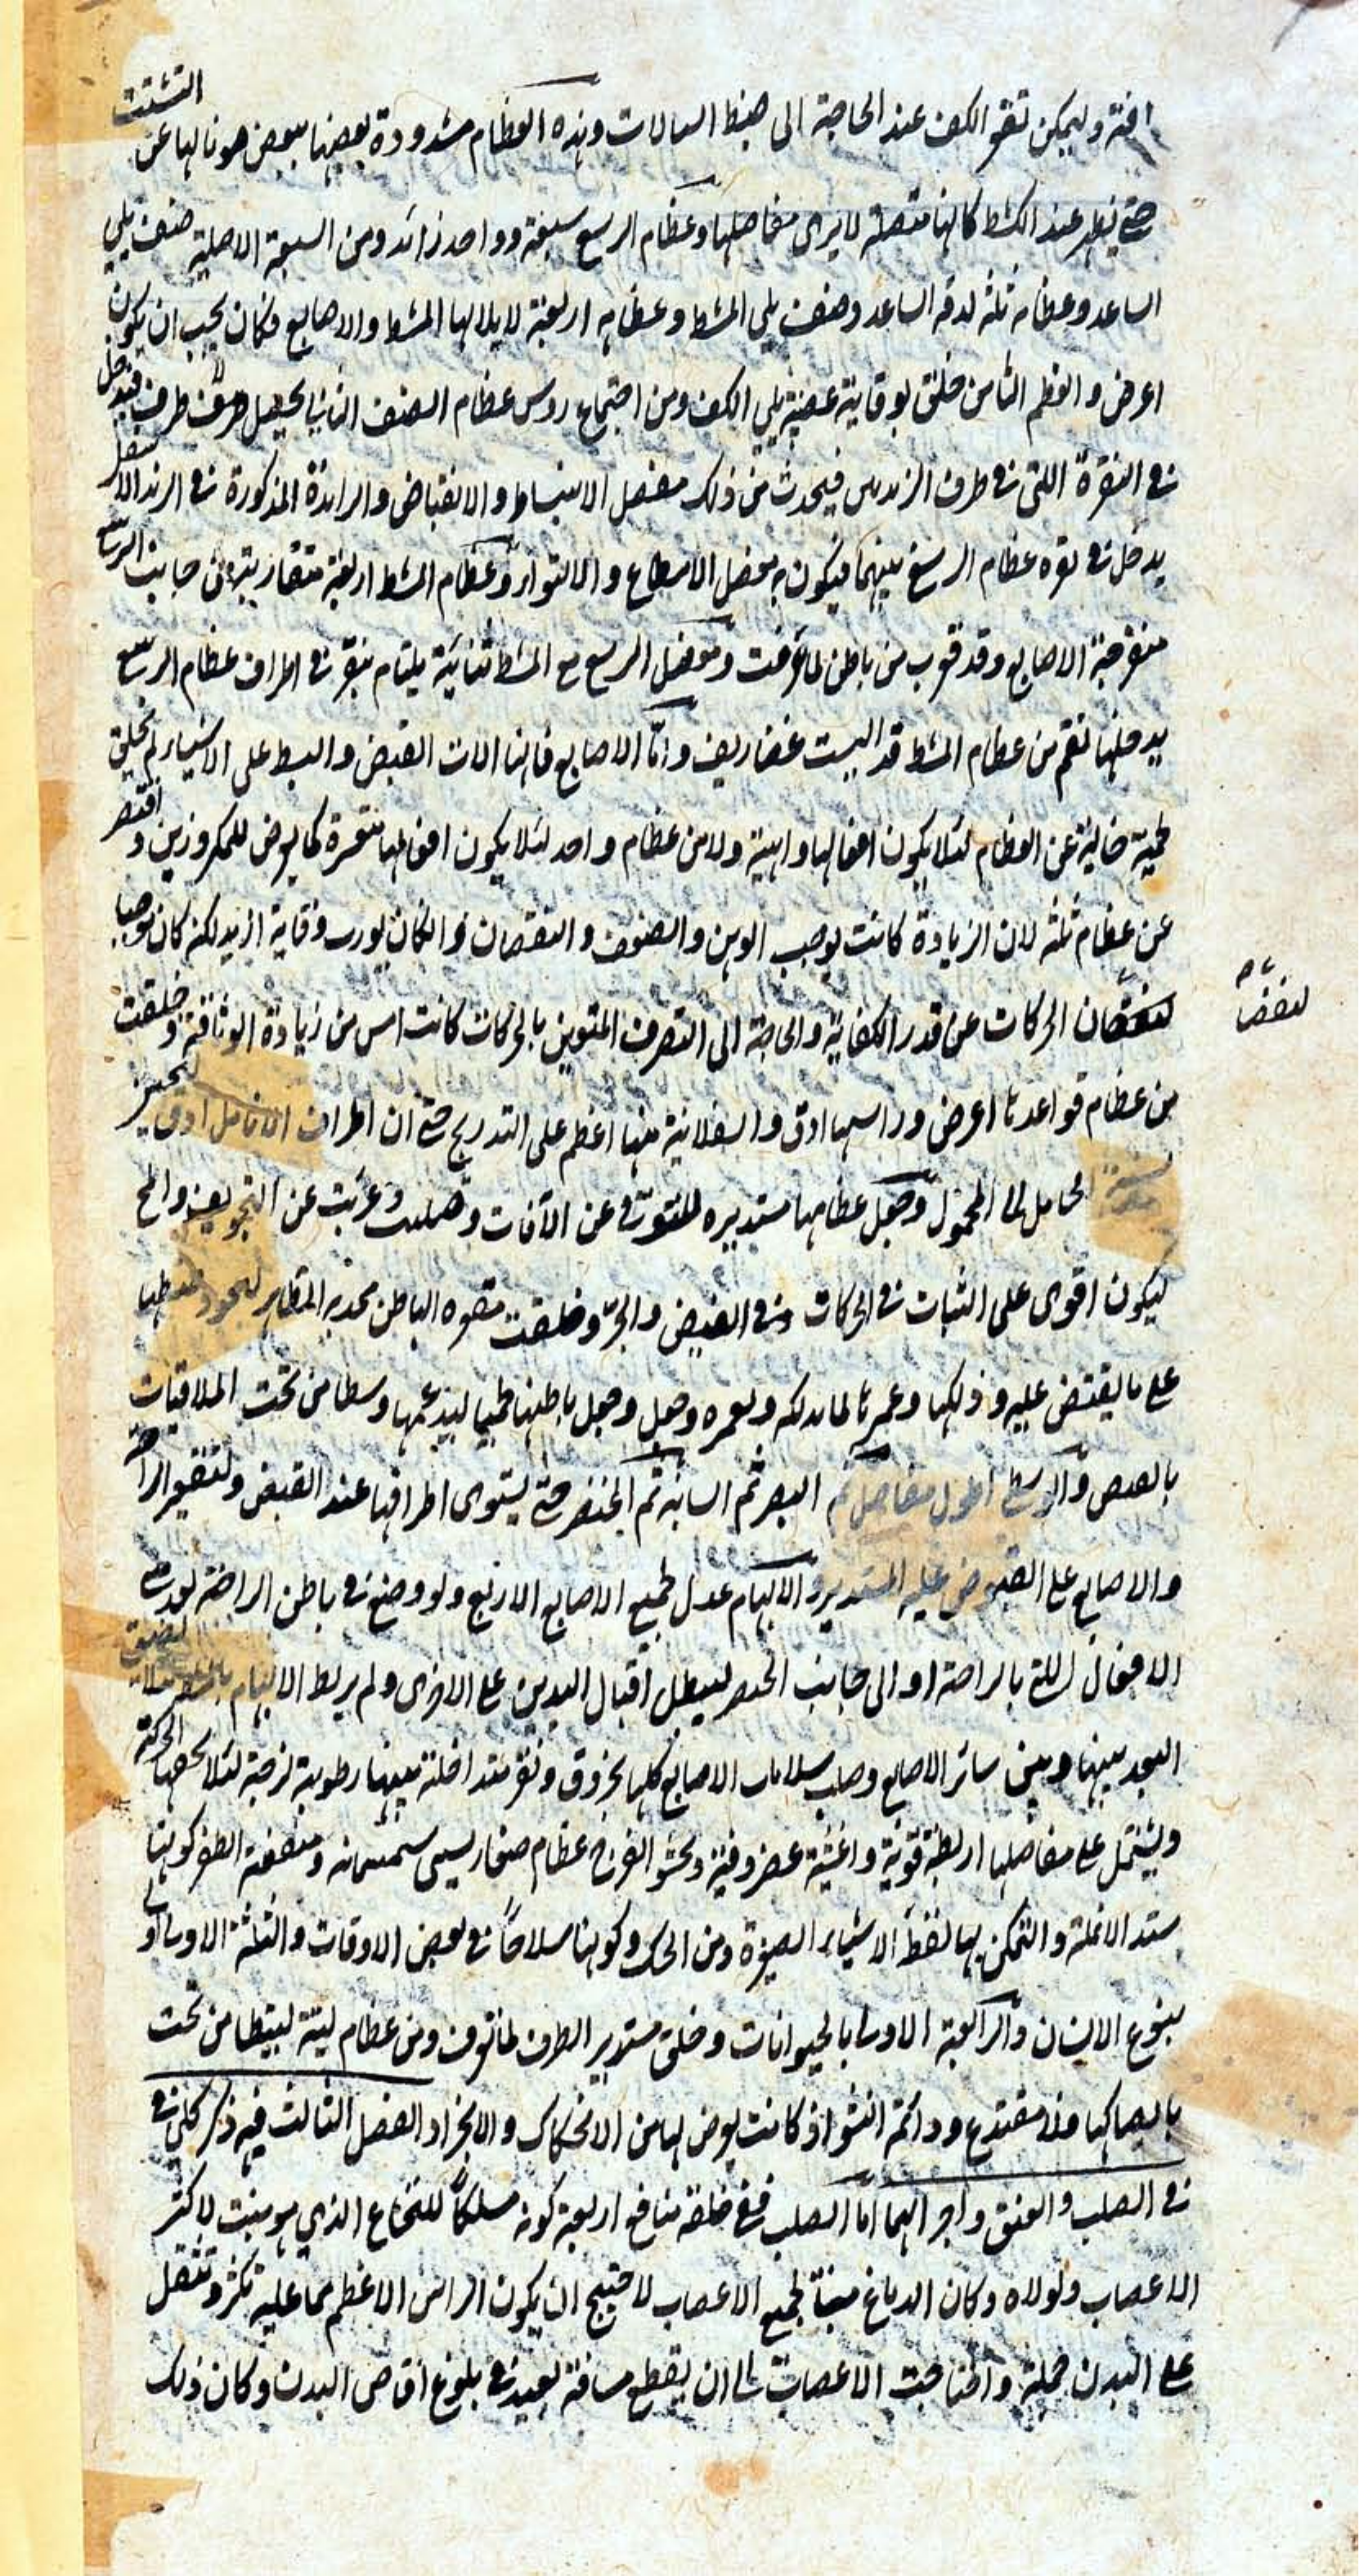 افة وليمكن تقعر الكف عند الحاجة الى ضبط السيالات وهذه العظام مشدودة بعضها ببعض صونا لها عن التشتت
حتى يظهر عند الكشط كانها متصلة لا يرى مفاصلها وعظام الرسغ سبعة وواحد زائد ومن السبعة الاصلية صنف يلي
الساعد وعظامه ثلثة لدقة الساعد وصنف يلي المشط وعظامه اربعة والاصابع فكان يجب ان يكون
اعرض والعظم الثامن خلق لوقاية عصبة يلي الكف ومن اجتماع روس عظام الصنف الثاني يحصل طرف فيدخل
في النقرة اللتي في طرف الزندين فيحدث من ذلك مفصل الانبساط والانقباض والزائدة المذكورة في الزند الاسفل
يدخل في نقره عظام الرسغ بينهما فيكون به مفصل الالتواء وعظام المشط اربعة متقاربة من جانب الرسغ
منفرجة الاصابع وقد قرب من باطن لما عرفت ومفصل الرسغ مع المشط يلتام بنقر في اطراف عظام الرسغ
يدخلها لقم من عظام المشط قد البست غضاريف واما الاصابع فانها الات القبض والبسط على الاشياء لم تخلق
لحمية خالية عن العظام لئلا يكون افعالها واهية ولا من عظام واحد لئلا يكون افعالها متعسرة كما يعرض للمكزوزين واقتصر
عن عظام ثلثة لان الزيادة كانت يوجب الوهن والضعف والنقصان وان كان يورث وقاية ازيد لكنه كان موجبا
لنقصان الحركات عن قدر الكفاية والحاجة الى التصرف المتوين بالحركات كانت امس من زيادة الوثاقة وخلقت
لنقصان
من عظام قواعدها اعرض وراسها ادق والسفلانية منها اعظم على التدريج حتى ان اطراف الانامل ادق ليحسن
نسبة الحامل الى المحمول وجعل عظامها مستديره للتوقي عن الآفات وصلبت وعريت عن التجويف والمخ
ليكون اقوى على الثبات في الحركات وفي القبض والجر وخلقت مقعره الباطن محدبه الظاهر ليجود ضبطها
على ما يقبض عليه ودلكها وغمزها لما يدلكه ويغمزه وجعل وجعل باطنها لحميا ليدعمها وسطا من تحت الملاقيات
والوسطى اطول مفاصل ثم البنصر ثم السبابة ثم الخنصر حتى يستوى اطرافها عند القبض ولتقعر الراحة
والاصابع على المقبوض عليه المستدير والابهام عدل لجميع الاصابع الاربع ولو وضع في باطن الراحة لعدمت
الافعال اللتي بالراحة او الى جانب الخنصر ليبطل اقبال اليدين على الاخرى ولم يربط الابهام بالمشط
البعد بينهما وبين سائر الاصابع وصلت سلاميات الاصابع كلها بحروف ونقر متداخلة بينها رطوبة لزجة لئلا يجففها الحركة
ويشتمل على مفاصلها اربطة قوية واغشية غضروفية وحشو الفرج عظام صغار يسمى سمسمانية ومنفعة الظفر كونها
سند الانملة والتمكن بها لقط الاشياء الصغيرة ومن الحك وكونها سلاحا في بعض الاوقات والثلثة الاولى
بنوع الانسان والرابعة الاولى بالحيوانات وخلق مستدير الطرف لما تعرف ومن عظام لينة ليتطامن تحت
ما يصاكها فلا ينصدع ودائم النشو اذ كانت يعرض لها من الانحكاك والانجراد الفصل الثالث فيه ذكر كلي في
في الصلب والعنق واجزائهما اما الصلب ففي خلقه منافع اربعة كونه مسلكا للنخاع الذي هو منبت لاكثر
الاعصاب ولولاه وكان الدماغ منبتا لجميع الاعصاب لاحتيج ان يكون الراس الاعظم مما عليه بكثر وثقل
على البدن حمله واحتاجت الاعصاب الى ان يقطع مسافة بعيدة في بلوغ اقاصى البدن وكان ذلك